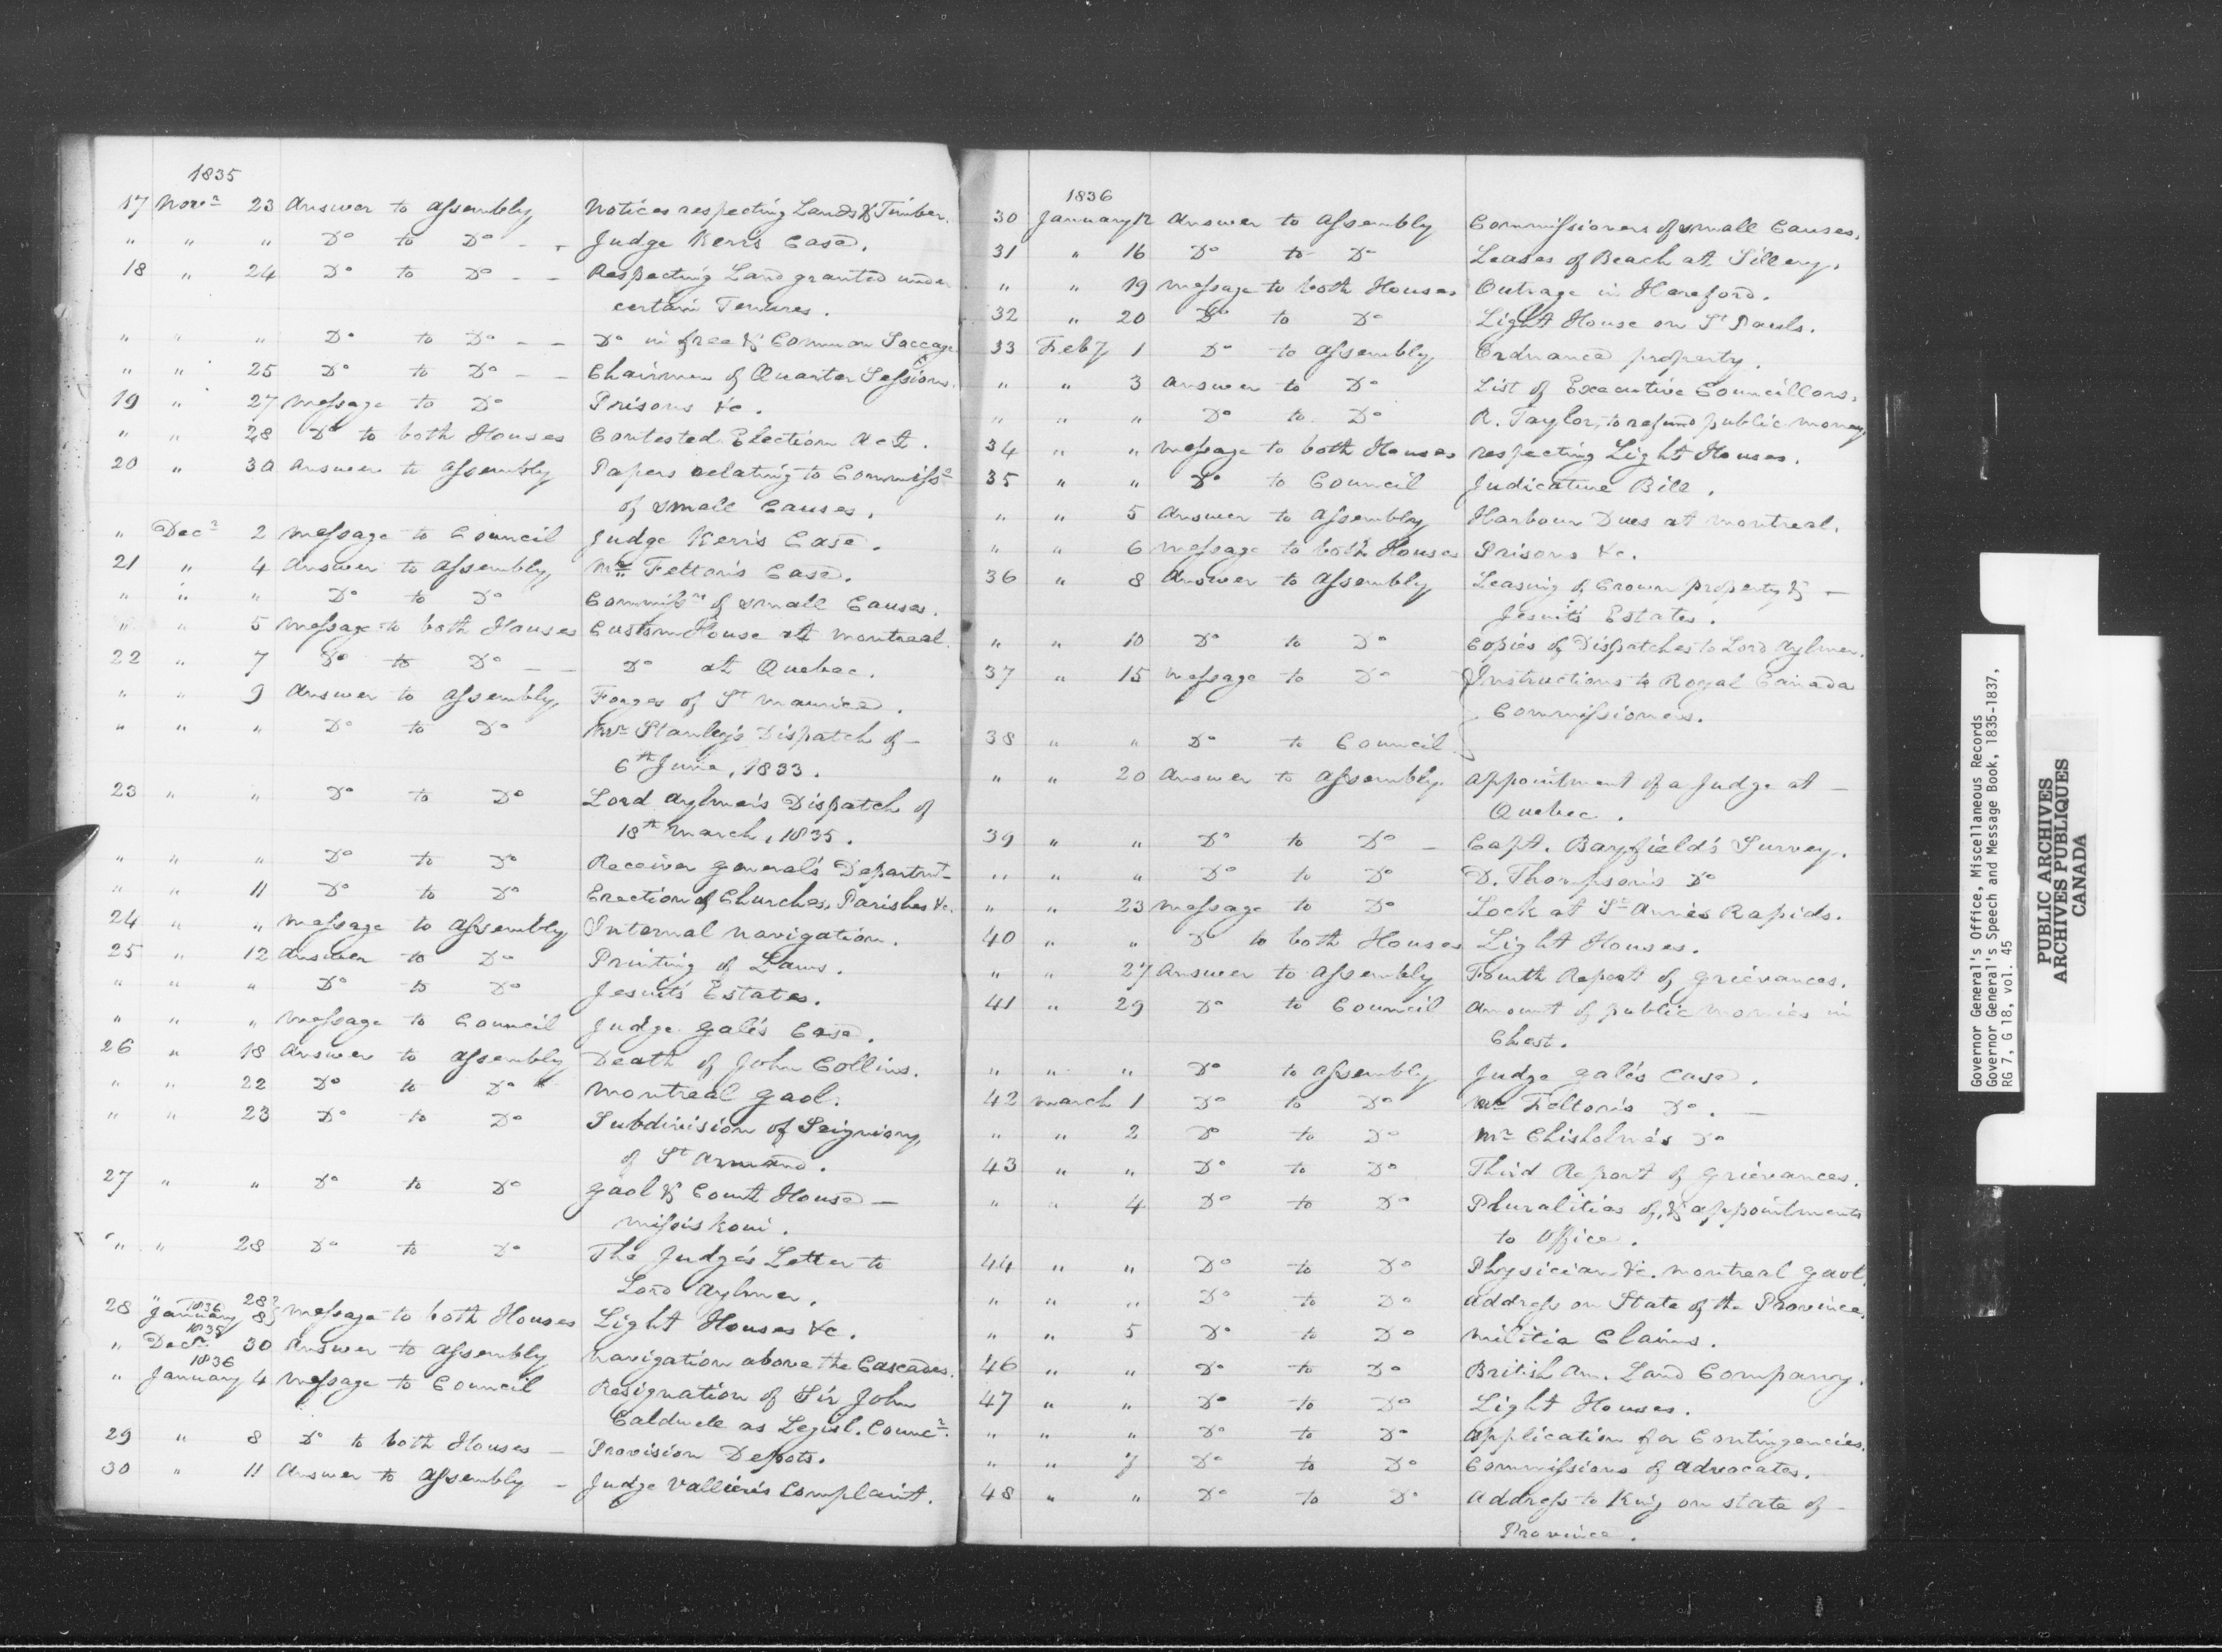 1835
17 Novr 23 Answer to Assembly Notices respecting Lands & Timber.
" " " Do to Do - - Judge Kerr's Case.
18 " 24 Do to Do - - Respecting Land granted under
certain Tenures.
" " " Do to Do - - Do in free & Common Soccage
" " 25 Do to Do - - Chairmen of Quarter Sessions.
19 " 27 Message to Do Prisons &c.
" " 28 Do to both Houses Contested Election Act.
20 " 30 Answer to Assembly Papers relating to Commissrs
of small Causes.
" Decr 2 Message to Council Judge Kerr's Case.
21 " 4 Answer to Assembly, Mr Felton's Case.
" " " Do to Do Commissrs of small Causes.
" " 5 Message to both Houses Custom House at Montreal.
22 " 7 Do to Do - - Do at Quebec.
" " 9 Answer to Assembly, Forges of St Maurice.
" " " Do to Do Mr Stanley's Dispatch of -
6th June, 1833.
23 " " Do to Do Lord Aylmer's Dispatch of
18th March, 1835.
" " " Do to Do Receiver General's Departmt
" " 11 Do to Do Erection of Churches, Parishes &c.
24 " " Message to Assembly Internal Navigation.
25 " 12 Answer to Do Printing of Laws.
" " " Do to Do Jesuits' Estates.
" " " Message to Council Judge Gale's Case.
26 " 18 Answer to Assembly Death of John Collins.
" " 22 Do to Do Montreal Gaol.
" " 23 Do to Do Subdivision of Seigniory,
of St Armand.
27 " " Do to Do Gaol & Court House -
Missiskoui.
" " 28 Do to Do The Judge's Letter to
Lord Aylmer.
" 28
28 1836 January 8 Message to both Houses Light Houses &c.
" 1835 Decr 30 Answer to Assembly Navigation above the Cascades.
" 1836 January 4 Message to Council Resignation of Sir John
Caldwell as Legisl. Councr.
29 " 8 Do to both Houses - Provision Depots.
30 " 11 Answer to Assembly - Judge Vallière's Complaint.
1836
30 January 12 Answer to Assembly Commissioners of small Causes.
31 " 16 Do to Do Leases of Beach at Sillery.
" " 19 Message to both Houses Outrage in Hereford.
32 " 20 Do to Do Light House on St Pauls.
33 Feby 1 Do to Assembly Ordnance property.
" " 3 Answer to Do List of Executive Councillors.
" " " Do to Do R. Taylor, to refund public money.
34 " " Message to both Houses respecting Light Houses.
35 " " Do to Council Judicature Bill.
" " 5 Answer to Assembly Harbour Dues at Montreal.
" " 6 Message to both Houses Prisons &c.
36 " 8 Answer to Assembly Leasing of Crown property & -
Jesuits' Estates.
" " 10 Do to Do Copies of Dispatches to Lord Aylmer.
37 " 15 Message to Do Instructions to Royal Canada
Commissioners.
38 " " Do to Council
" " 20 Answer to Assembly. Appointment of a Judge at -
Quebec.
39 " " Do to Do - Capt. Bayfield's Survey.
" " " Do to Do D. Thompson's Do
" " 23 Message to Do Lock at St Anne's Rapids.
40 " " Do to both Houses Light Houses.
" " 27 Answer to Assembly Fourth Report of Grievances.
41 " 29 Do to Council Amount of public Monies in
Chest.
" " " Do to Assembly Judge Gale's Case.
42 March 1 Do to Do Mr Felton's Do. -
" " 2 Do to Do Mr Chisholme's Do
43 " " Do to Do Third Report of Grievances.
" " 4 Do to Do Pluralities of, & appointments
to Office.
44 " " Do to Do Physician &c. Montreal Gaol.
" " " Do to Do Address on State of the Province.
" " 5 Do to Do Militia Claims.
46 " " Do to Do British Am. Land Company.
47 " " Do to Do Light Houses.
" " " Do to Do Application for Contingencies.
" " 7 Do to Do Commissions of Advocates.
48 " " Do to Do Address to King on state of -
Province.
Governor General's Office, Miscellaneous Records
Governor General's Speech and Message Book, 1835-1837,
RG 7, G 18, vol. 45
PUBLIC ARCHIVES
ARCHIVES PUBLIQUES
CANADA